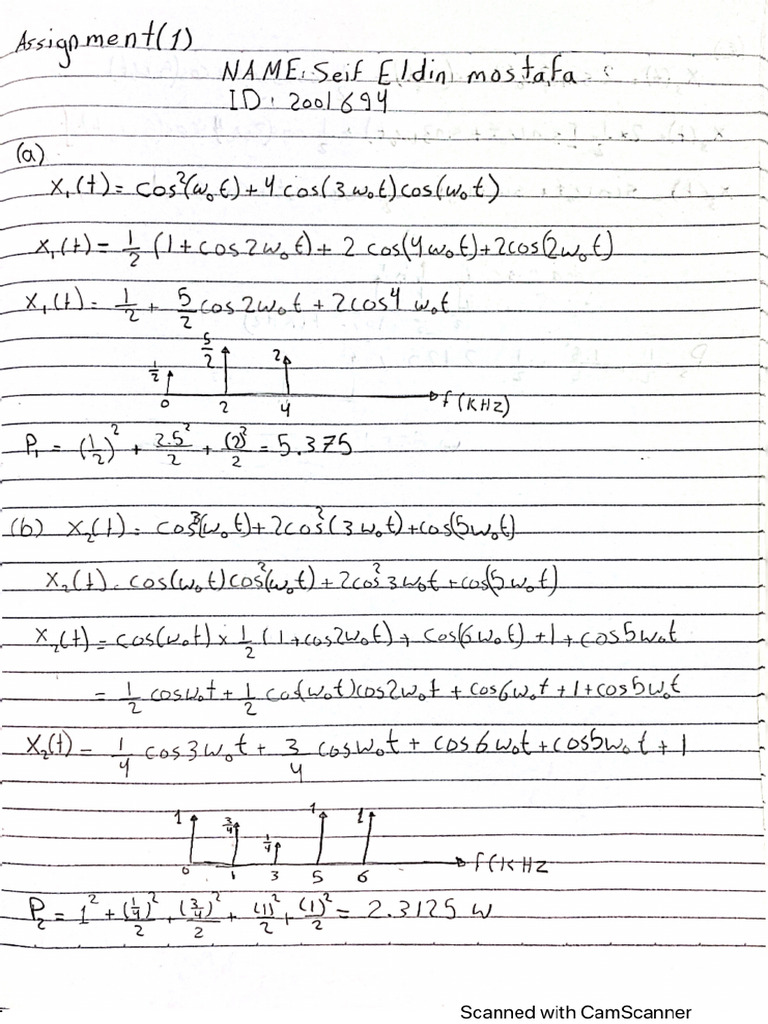 Assignment(1)
NAME: Seif Eldin mostafa
ID: 2001694
(a)
x₁(t) = cos²(ω₀t) + 4 cos(3ω₀t) cos(ω₀t)
x₁(t) = 1/2 (1 + cos2ω₀t) + 2 cos(4ω₀t) + 2cos(2ω₀t)
x₁(t) = 1/2 + 5/2 cos2ω₀t + 2cos4 ω₀t
1/2 5/2 2
0 2 4 f(KHz)
P₁ = (1/2)² + 2.5²/2 + (2)²/2 = 5.375
(b) x₂(t) = cos³(ω₀t) + 2cos²(3ω₀t) + cos(5ω₀t)
x₂(t) = cos(ω₀t) cos²(ω₀t) + 2cos² 3ω₀t + cos(5ω₀t)
x₂(t) = cos(ω₀t) × 1/2 (1 + cos2ω₀t) + cos(6ω₀t) + 1 + cos5ω₀t
= 1/2 cosω₀t + 1/2 cos(ω₀t) cos2ω₀t + cos6ω₀t + 1 + cos5ω₀t
x₂(t) = 1/4 cos3ω₀t + 3/4 cosω₀t + cos6ω₀t + cos5ω₀t + 1
1 3/4 1/4 1 1
0 1 3 5 6 f(KHz
P₂ = 1² + (1/4)²/2 + (3/4)²/2 + (1)²/2 + (1)²/2 = 2.3125 W
Scanned with CamScanner